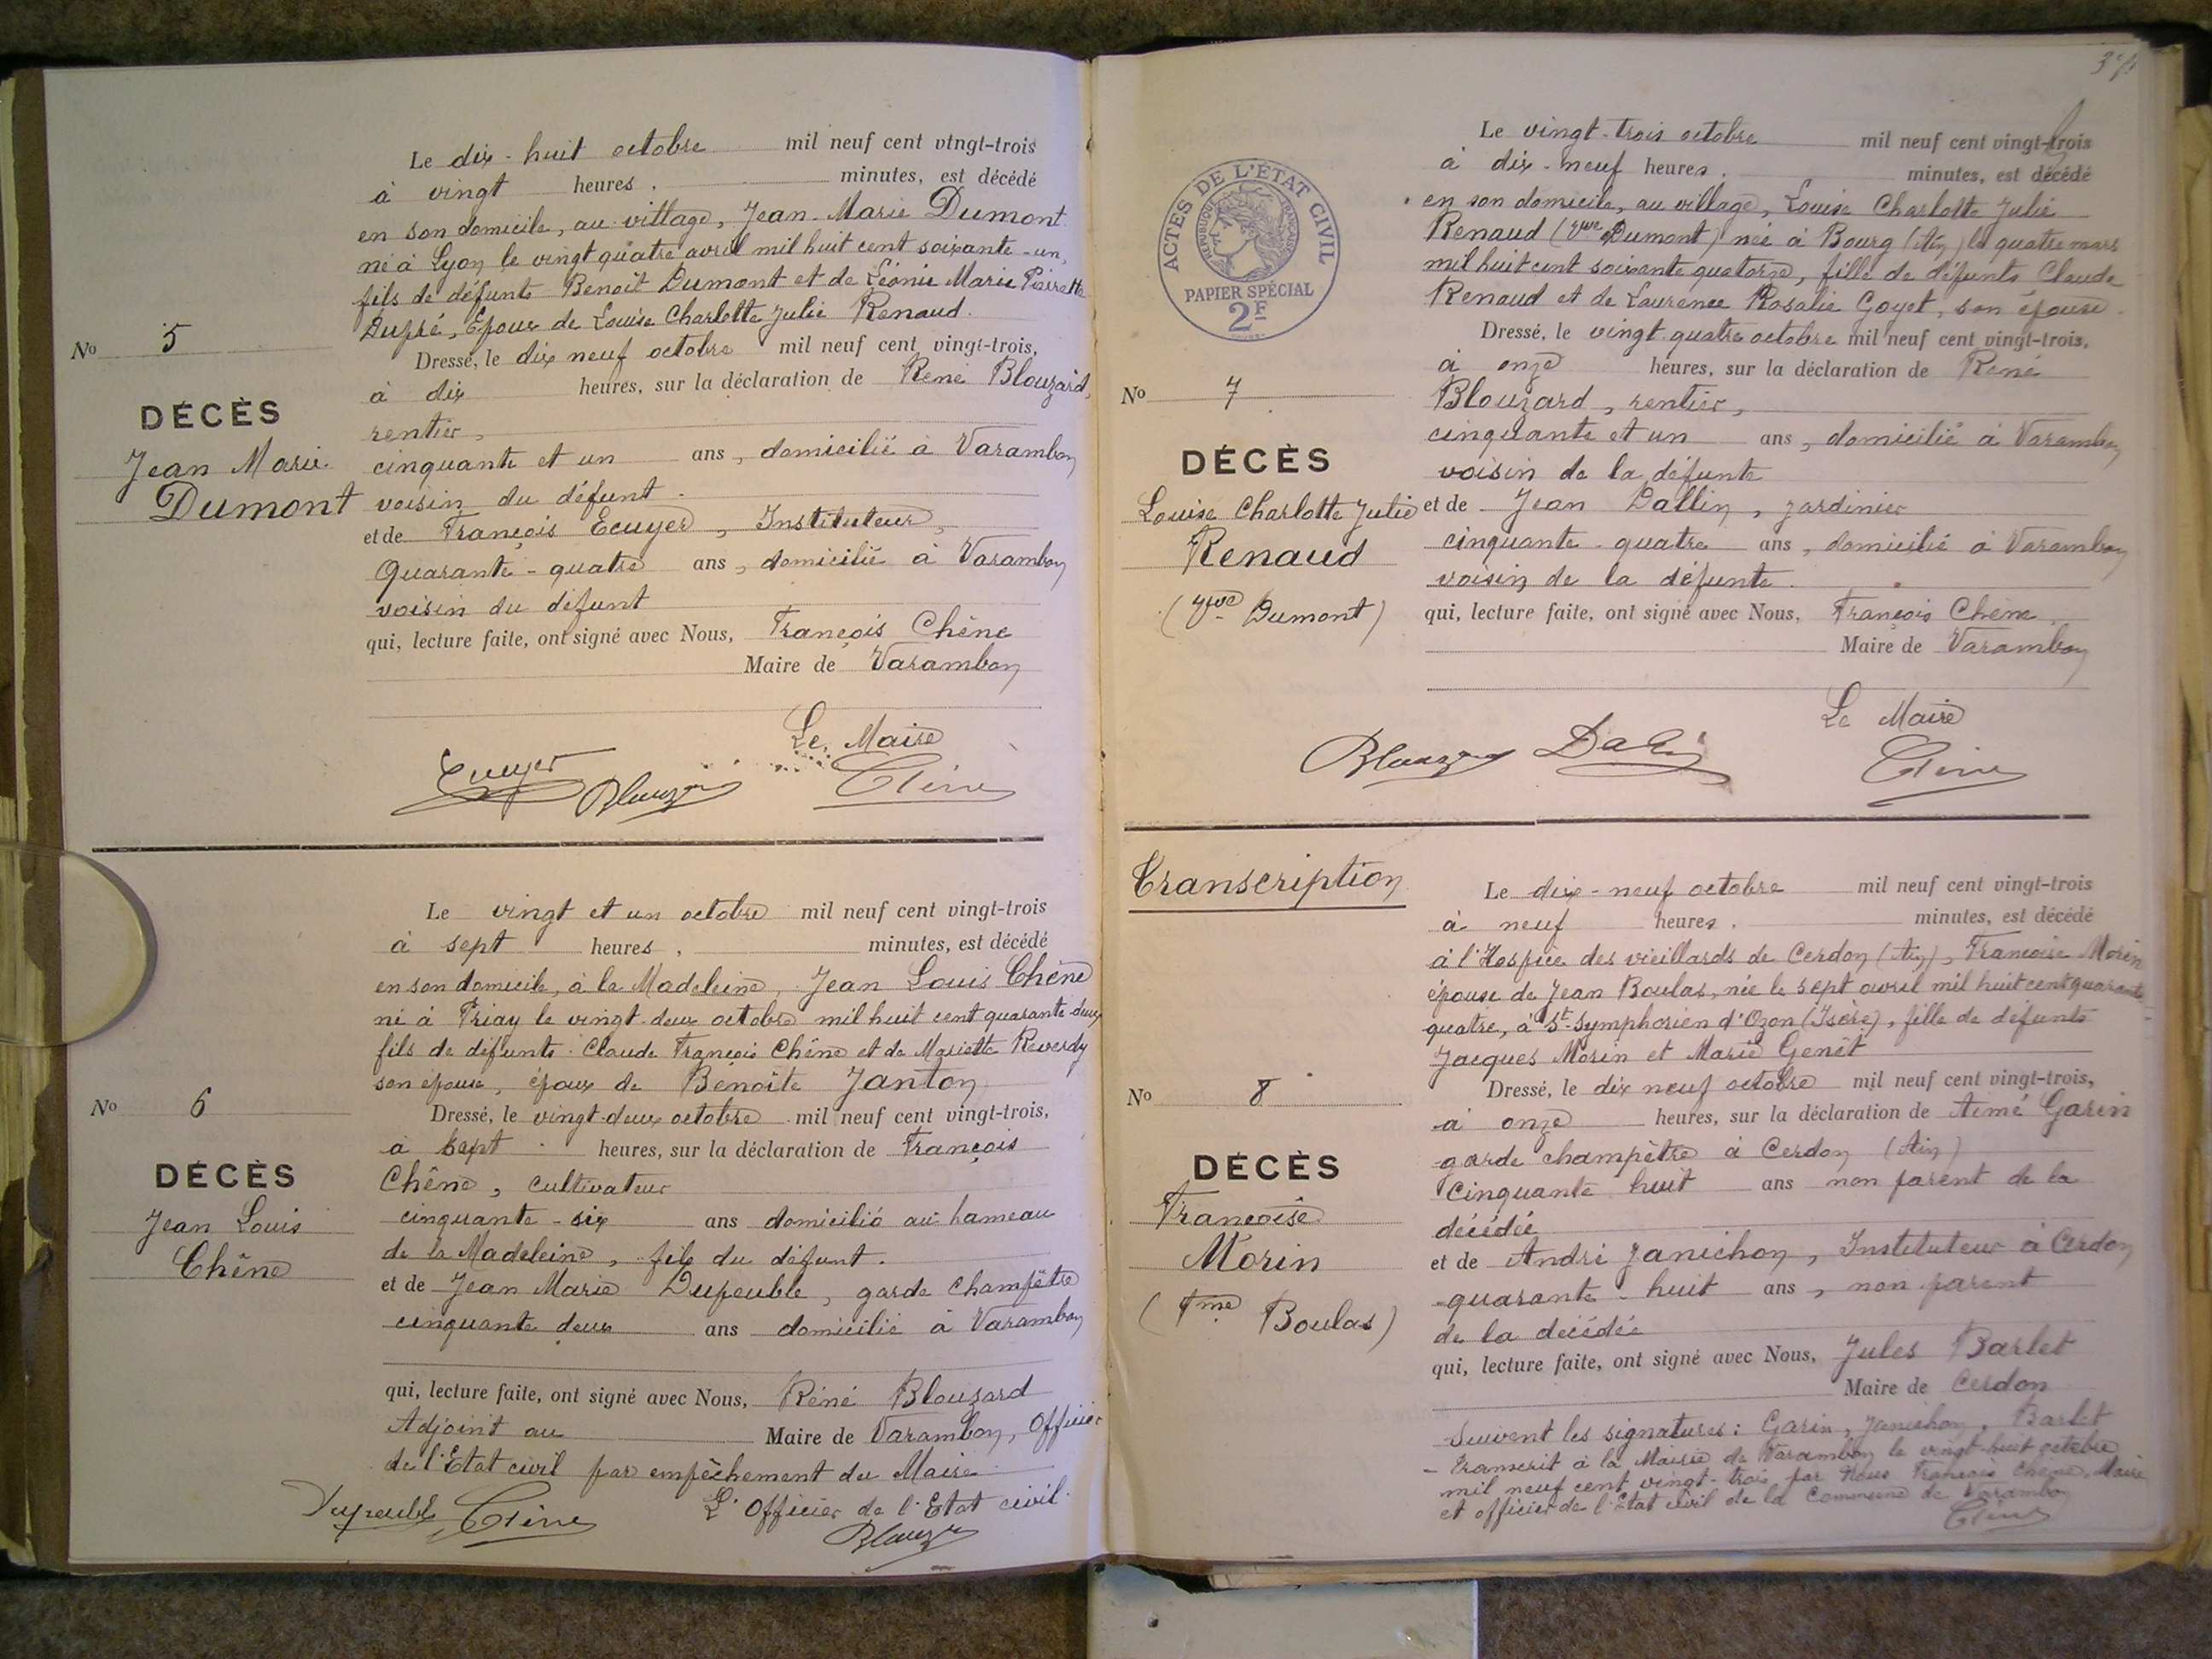 Le dix-huit octobre mil neuf cent vingt-trois
à vingt heures, minutes, est décédé
en son domicile, au village, Jean-Marie Dumont
né à Lyon le vingt quatre avril mil huit cent soixante-un,
fils de défunts Benoît Dumont et de Léonie Marie Pierrette
Dupré, Epoux de Louise Charlotte Julie Renaud.
Dressé, le dix neuf octobre mil neuf cent vingt-trois,
à dix heures, sur la déclaration de René Blouzard,
rentier,
cinquante et un ans, domicilié à Varambon
voisin du défunt.
et de François Ecuyer, Instituteur,
Quarante-quatre ans, domicilié à Varambon
voisin du défunt
qui, lecture faite, ont signé avec Nous, François Chêne
Maire de Varambon
Le Maire
Ecuyer Blouzard Chêne
No 5
DÉCÈS
Jean Marie
Dumont
Le vingt et un octobre mil neuf cent vingt-trois
à sept heures, minutes, est décédé
en son domicile, à la Madeleine, Jean Louis Chêne
né à Priay le vingt-deux octobre mil huit cent quarante-deux
fils de défunts Claude François Chêne et de Mariette Reverdy
son épouse, époux de Benoite Janton
Dressé, le vingt-deux octobre mil neuf cent vingt-trois,
à sept heures, sur la déclaration de François
Chêne, cultivateur
cinquante-six ans domicilié au hameau
de la Madeleine, fils du défunt.
et de Jean Marie Dupeuble, garde champêtre
cinquante deux ans domicilié à Varambon
qui, lecture faite, ont signé avec Nous, Réné Blouzard
Adjoint au Maire de Varambon, Officier
de l'Etat civil par empêchement du Maire
L'Officier de l'Etat civil.
Dupeuble Chêne Blouzard
No 6
DÉCÈS
Jean Louis
Chêne
37
ACTES DE L'ÉTAT CIVIL
RÉPUBLIQUE FRANÇAISE
PAPIER SPÉCIAL
2F
Le vingt-trois octobre mil neuf cent vingt-trois
à dix-neuf heures. minutes, est décédé
en son domicile, au village, Louise Charlotte Julie
Renaud (Vve Dumont) née à Bourg (Ain) le quatre mars
mil huit cent soixante quatorze, fille de défunts Claude
Renaud et de Laurence Rosalie Goyet, son épouse.
Dressé, le vingt-quatre octobre mil neuf cent vingt-trois,
à onze heures, sur la déclaration de René
Blouzard, rentier,
cinquante et un ans, domicilié à Varambon
voisin de la défunte
et de Jean Dallin, jardinier
cinquante-quatre ans, domicilié à Varambon
voisin de la défunte.
qui, lecture faite, ont signé avec Nous, François Chêne
Maire de Varambon
Le Maire
Blouzard Chêne
No 7
DÉCÈS
Louise Charlotte Julie
Renaud
(Vve Dumont)
Transcription
Le dix-neuf octobre mil neuf cent vingt-trois
à neuf heures. minutes, est décédé
à l'Hospice des vieillards de Cerdon (Ain), Françoise Morin
épouse de Jean Boulas, née le sept avril mil huit cent quarante-
quatre, à St-Symphorien d'Ozon (Isère), fille de défunts
Jacques Morin et Marie Genêt
Dressé, le dix neuf octobre mil neuf cent vingt-trois,
à onze heures, sur la déclaration de Aimé Garin
garde champêtre à Cerdon (Ain)
Cinquante huit ans non parent de la
décédée
et de André Janichon, Instituteur à Cerdon
quarante-huit ans, non parent
de la décédée
qui, lecture faite, ont signé avec Nous, Jules Barlet
Maire de Cerdon
Suivent les signatures: Garin, Janichon, Barlet
- Transcrit à la Mairie de Varambon le vingt-huit octobre
mil neuf cent vingt-trois par Nous François Chêne, Maire
et officier de l'Etat civil de la Commune de Varambon
Chêne
No 8
DÉCÈS
Françoise
Morin
(Fme Boulas)